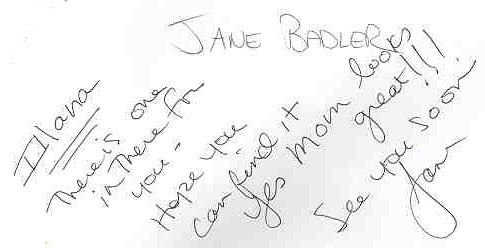 JANE BADLER
Illana
There is one
in There for
you.
Hope you
can find it
Yes Mom looks
great!!!
See you soon
Jane